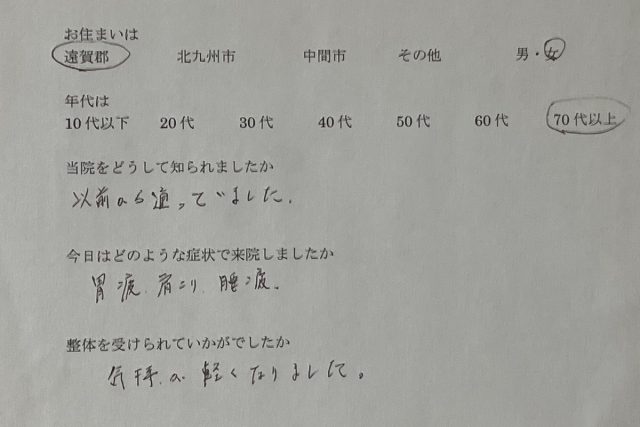 お住まいは
遠賀郡 北九州市 中間市 その他 男・女
年代は
10代以下 20代 30代 40代 50代 60代 70代以上
当院をどうして知られましたか
以前から通っていました。
今日はどのような症状で来院しましたか
胃痛、肩こり、腰痛。
整体を受けられていかがでしたか
気持が軽くなりました。